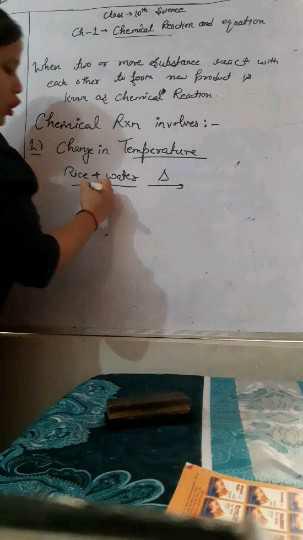 Class → 10th Science
Ch-1 → Chemical Reaction and eqation
When two or more substance react with
each other to form new product is
known as Chemical Reaction.
Chemical Rxn involves :-
1) Change in Temperature
Rice + water Δ →